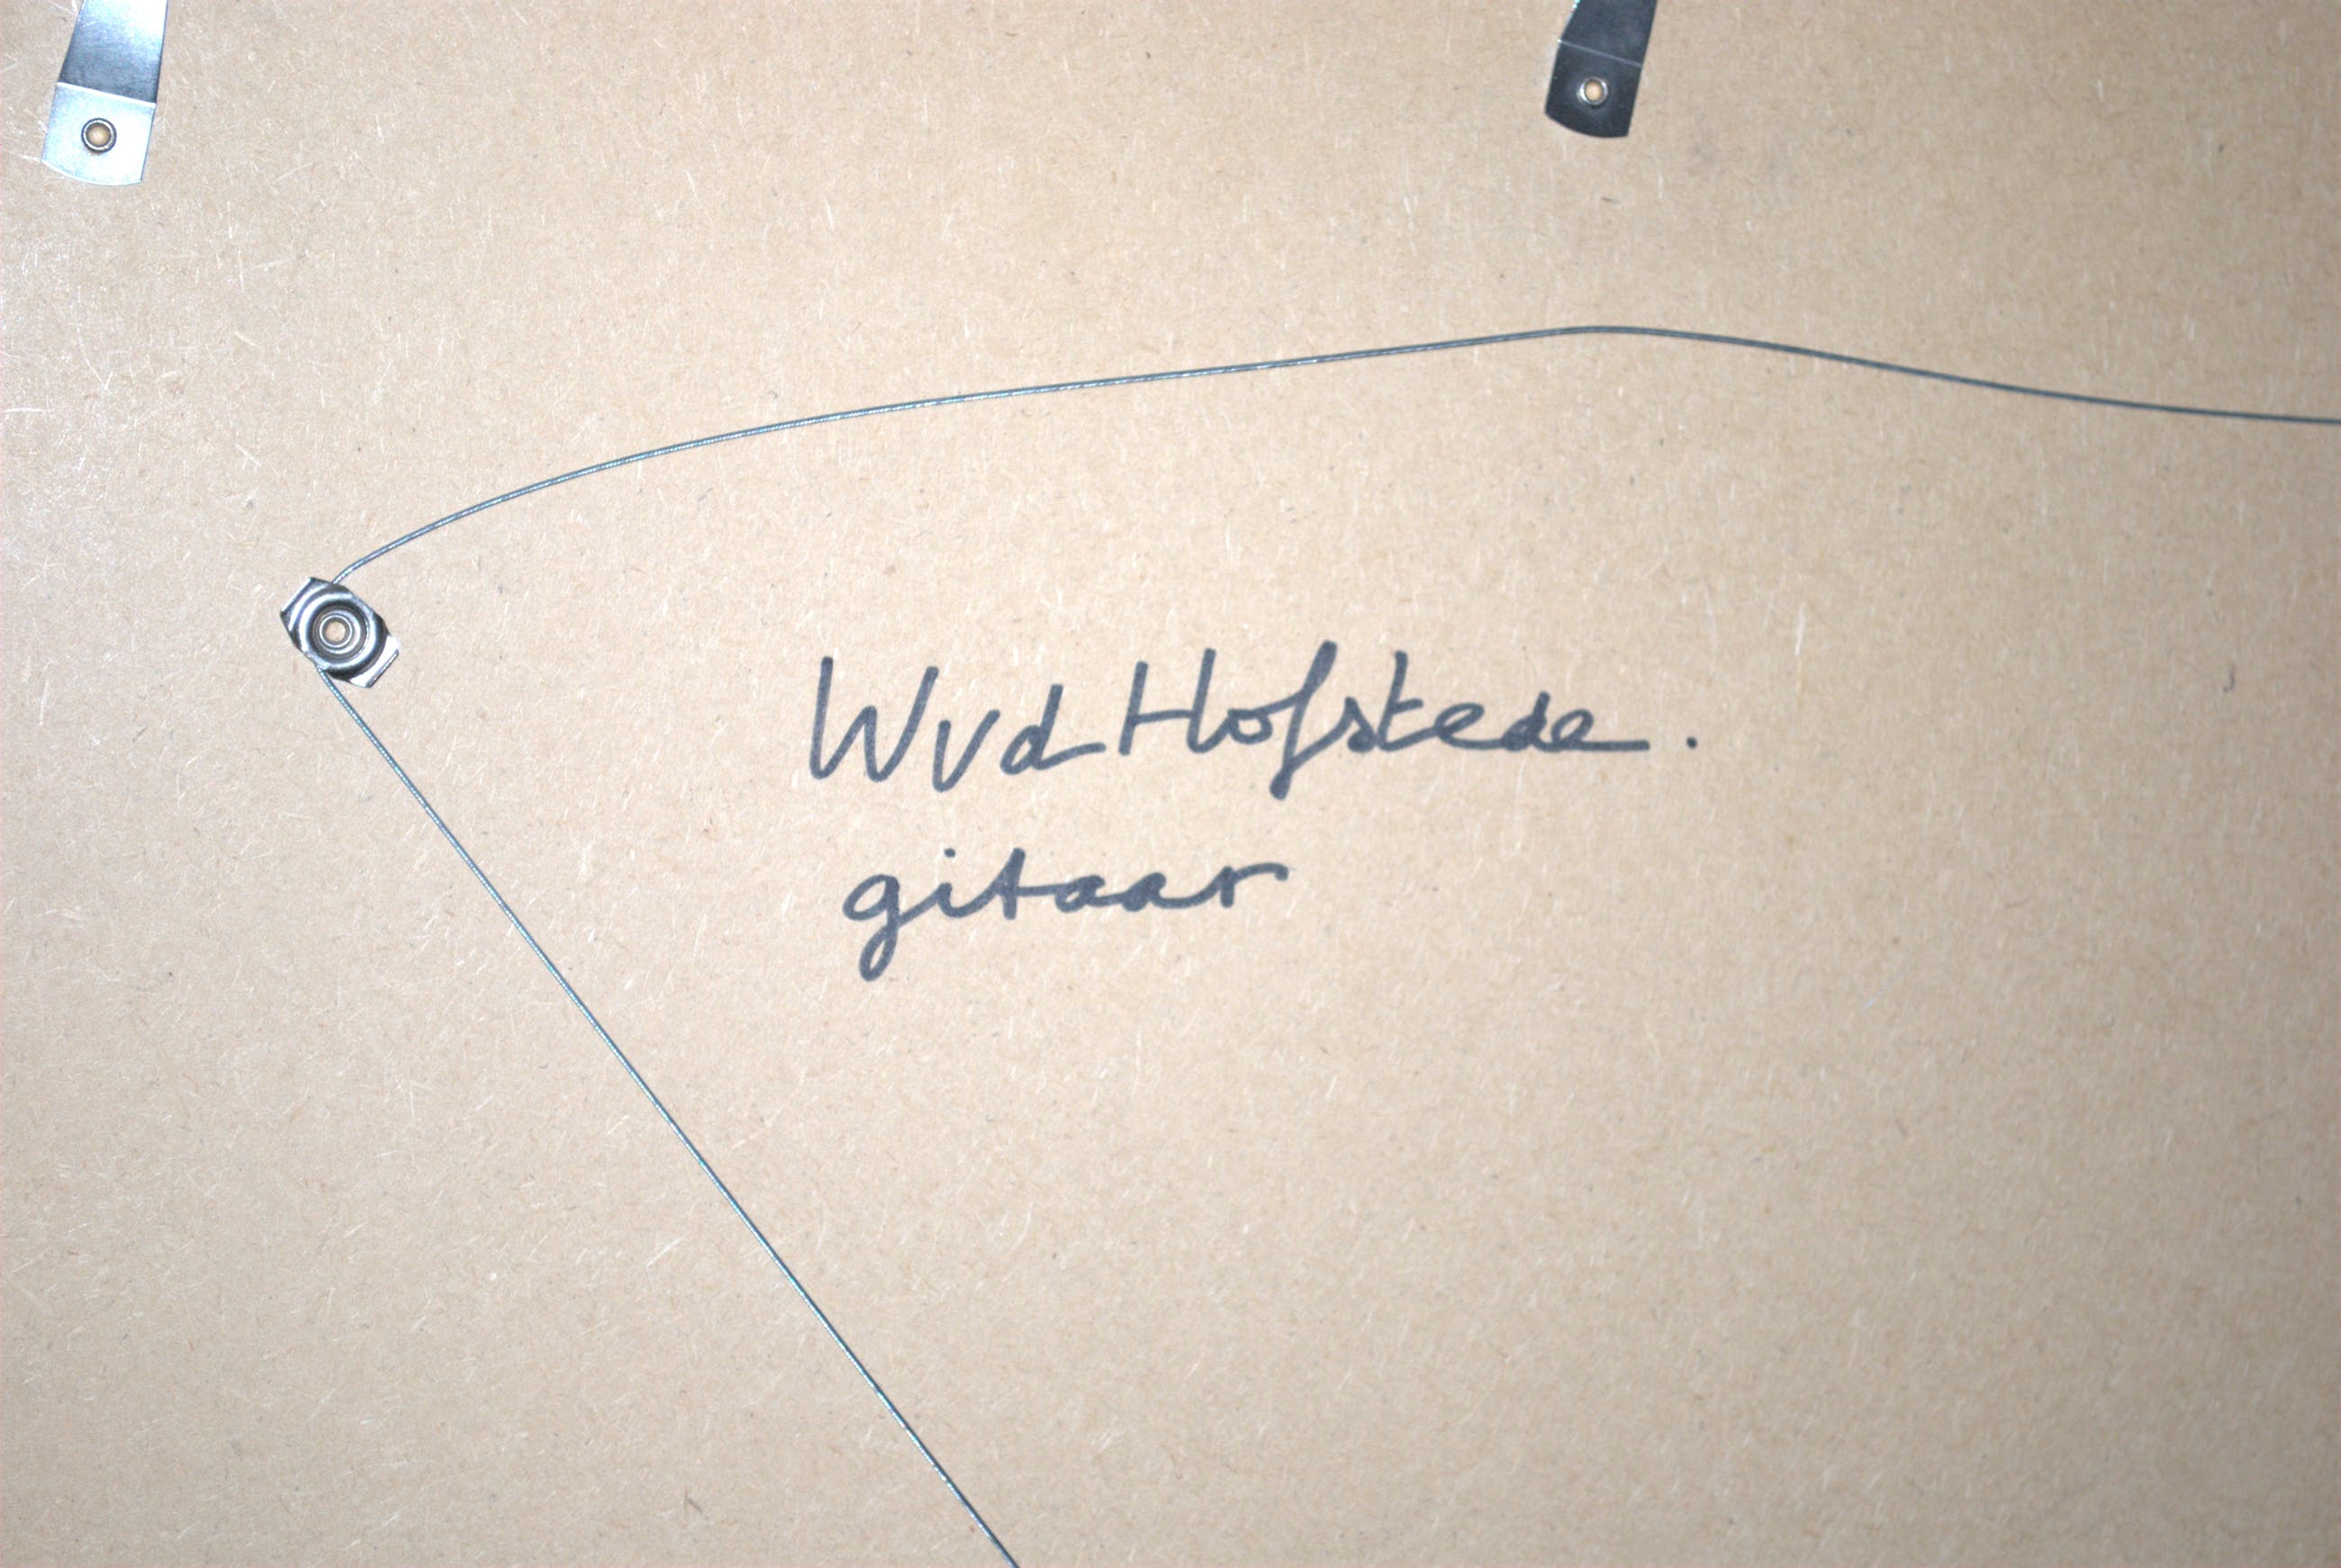 Wvd Hofstede.
gitaar